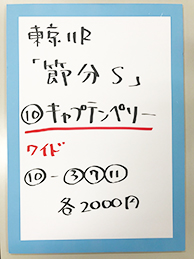 東京11R
「節分S」
⑩キャプテンペリー
ワイド
⑩-③⑦⑪
各2000円